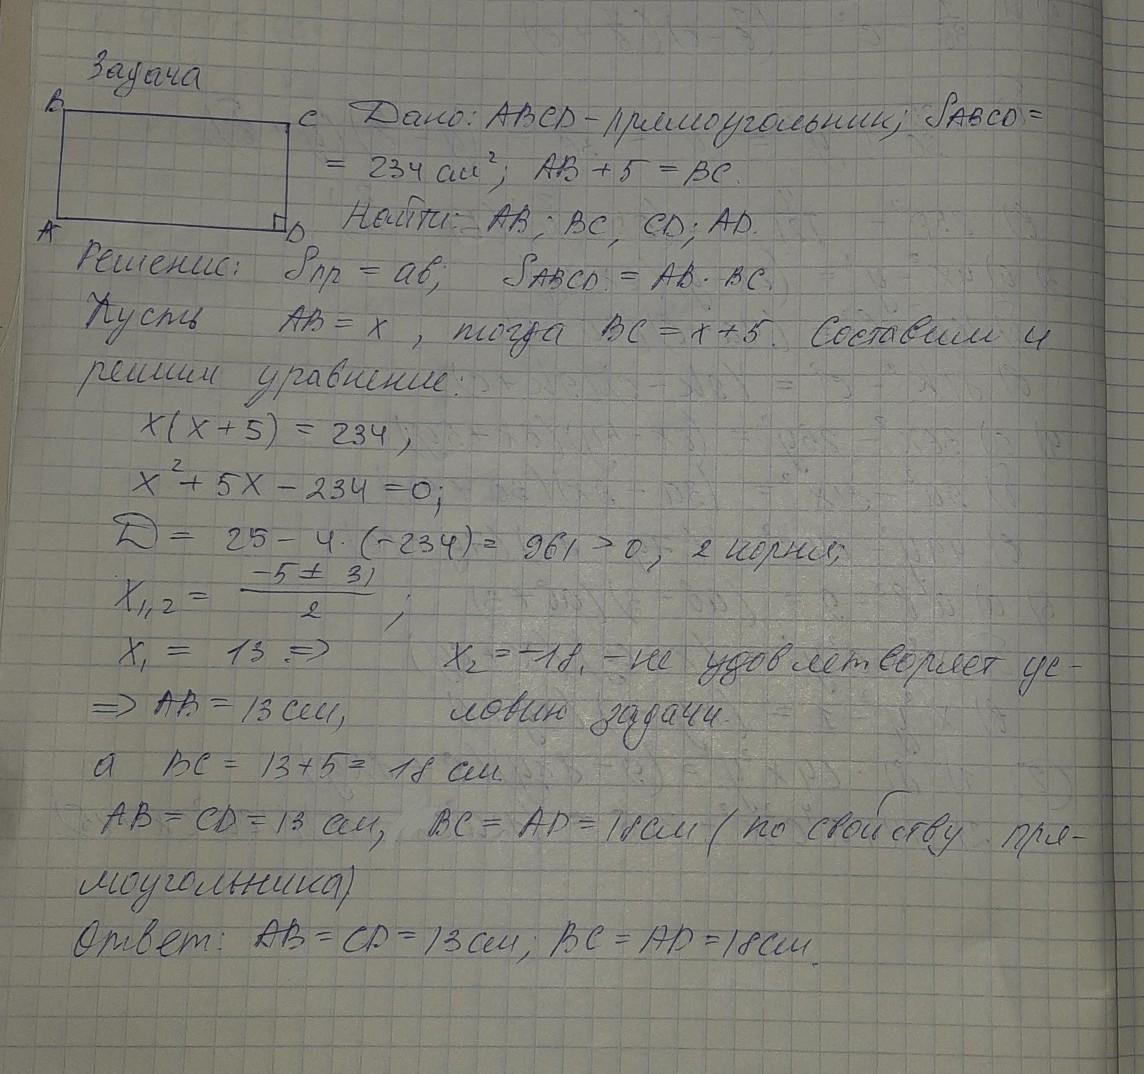 Задача
B C Дано: ABCD - прямоугольник; SABCD =
= 234 см²; AB + 5 = BC.
A D Найти: AB; BC, CD; AD.
Решение: Sпр = ав; SABCD = AB · BC.
Пусть AB = x, тогда BC = x + 5. Составим и
решим уравнение:
x(x + 5) = 234;
x² + 5x - 234 = 0;
D = 25 - 4 · (-234) = 961 > 0, 2 корня;
x1,2 = (-5 ± 31)/2;
x1 = 13 => x2 = -18, - не удовлетворяет ус-
=> AB = 13 см, ловию задачи.
а BC = 13 + 5 = 18 см
AB = CD = 13 см, BC = AD = 18 см (по свойству пря-
моугольника)
Ответ: AB = CD = 13 см; BC = AD = 18 см.